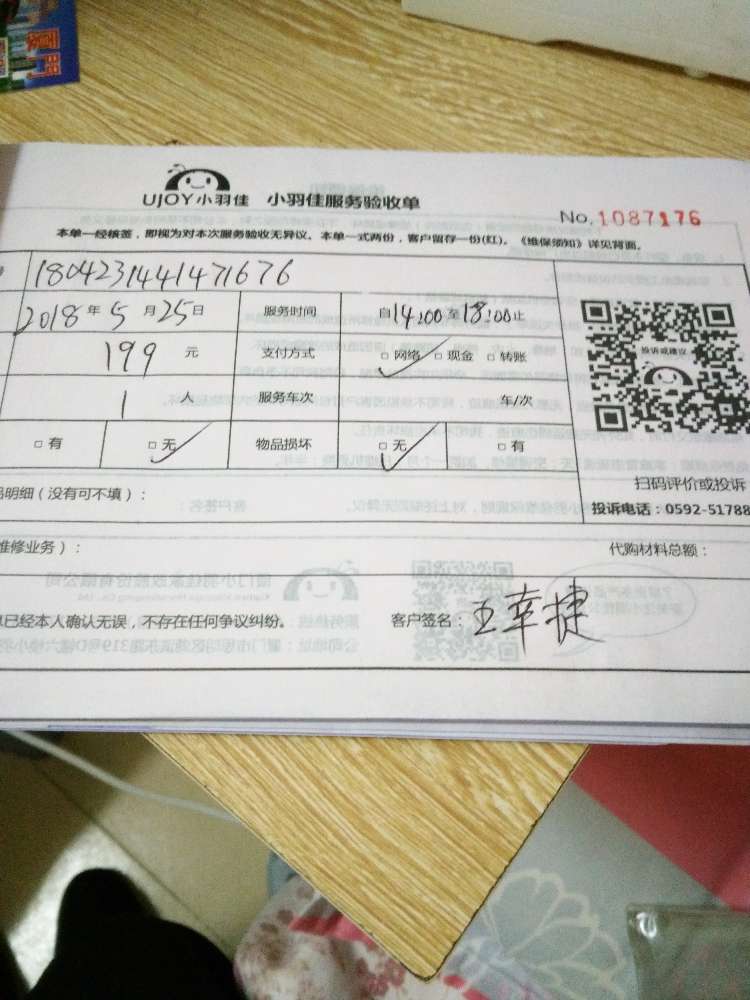 厦門
UJOY小羽佳 小羽佳服务验收单
No.1087176
本单一经核签，即视为对本次服务验收无异议。本单一式两份，客户留存一份(红)。《维保须知》详见背面。
1804231441471676
2018年5月25日 服务时间 自14:00至18:00止
199元 支付方式 □网络 □现金 □转账
投诉或建议
1人 服务车次 车/次
□有 □无 物品损坏 □无 □有
扫码评价或投诉
明细（没有可不填）：
投诉电话：0592-51788
维修业务）： 代购材料总额：
已经本人确认无误，不存在任何争议纠纷。 客户签名：王幸捷